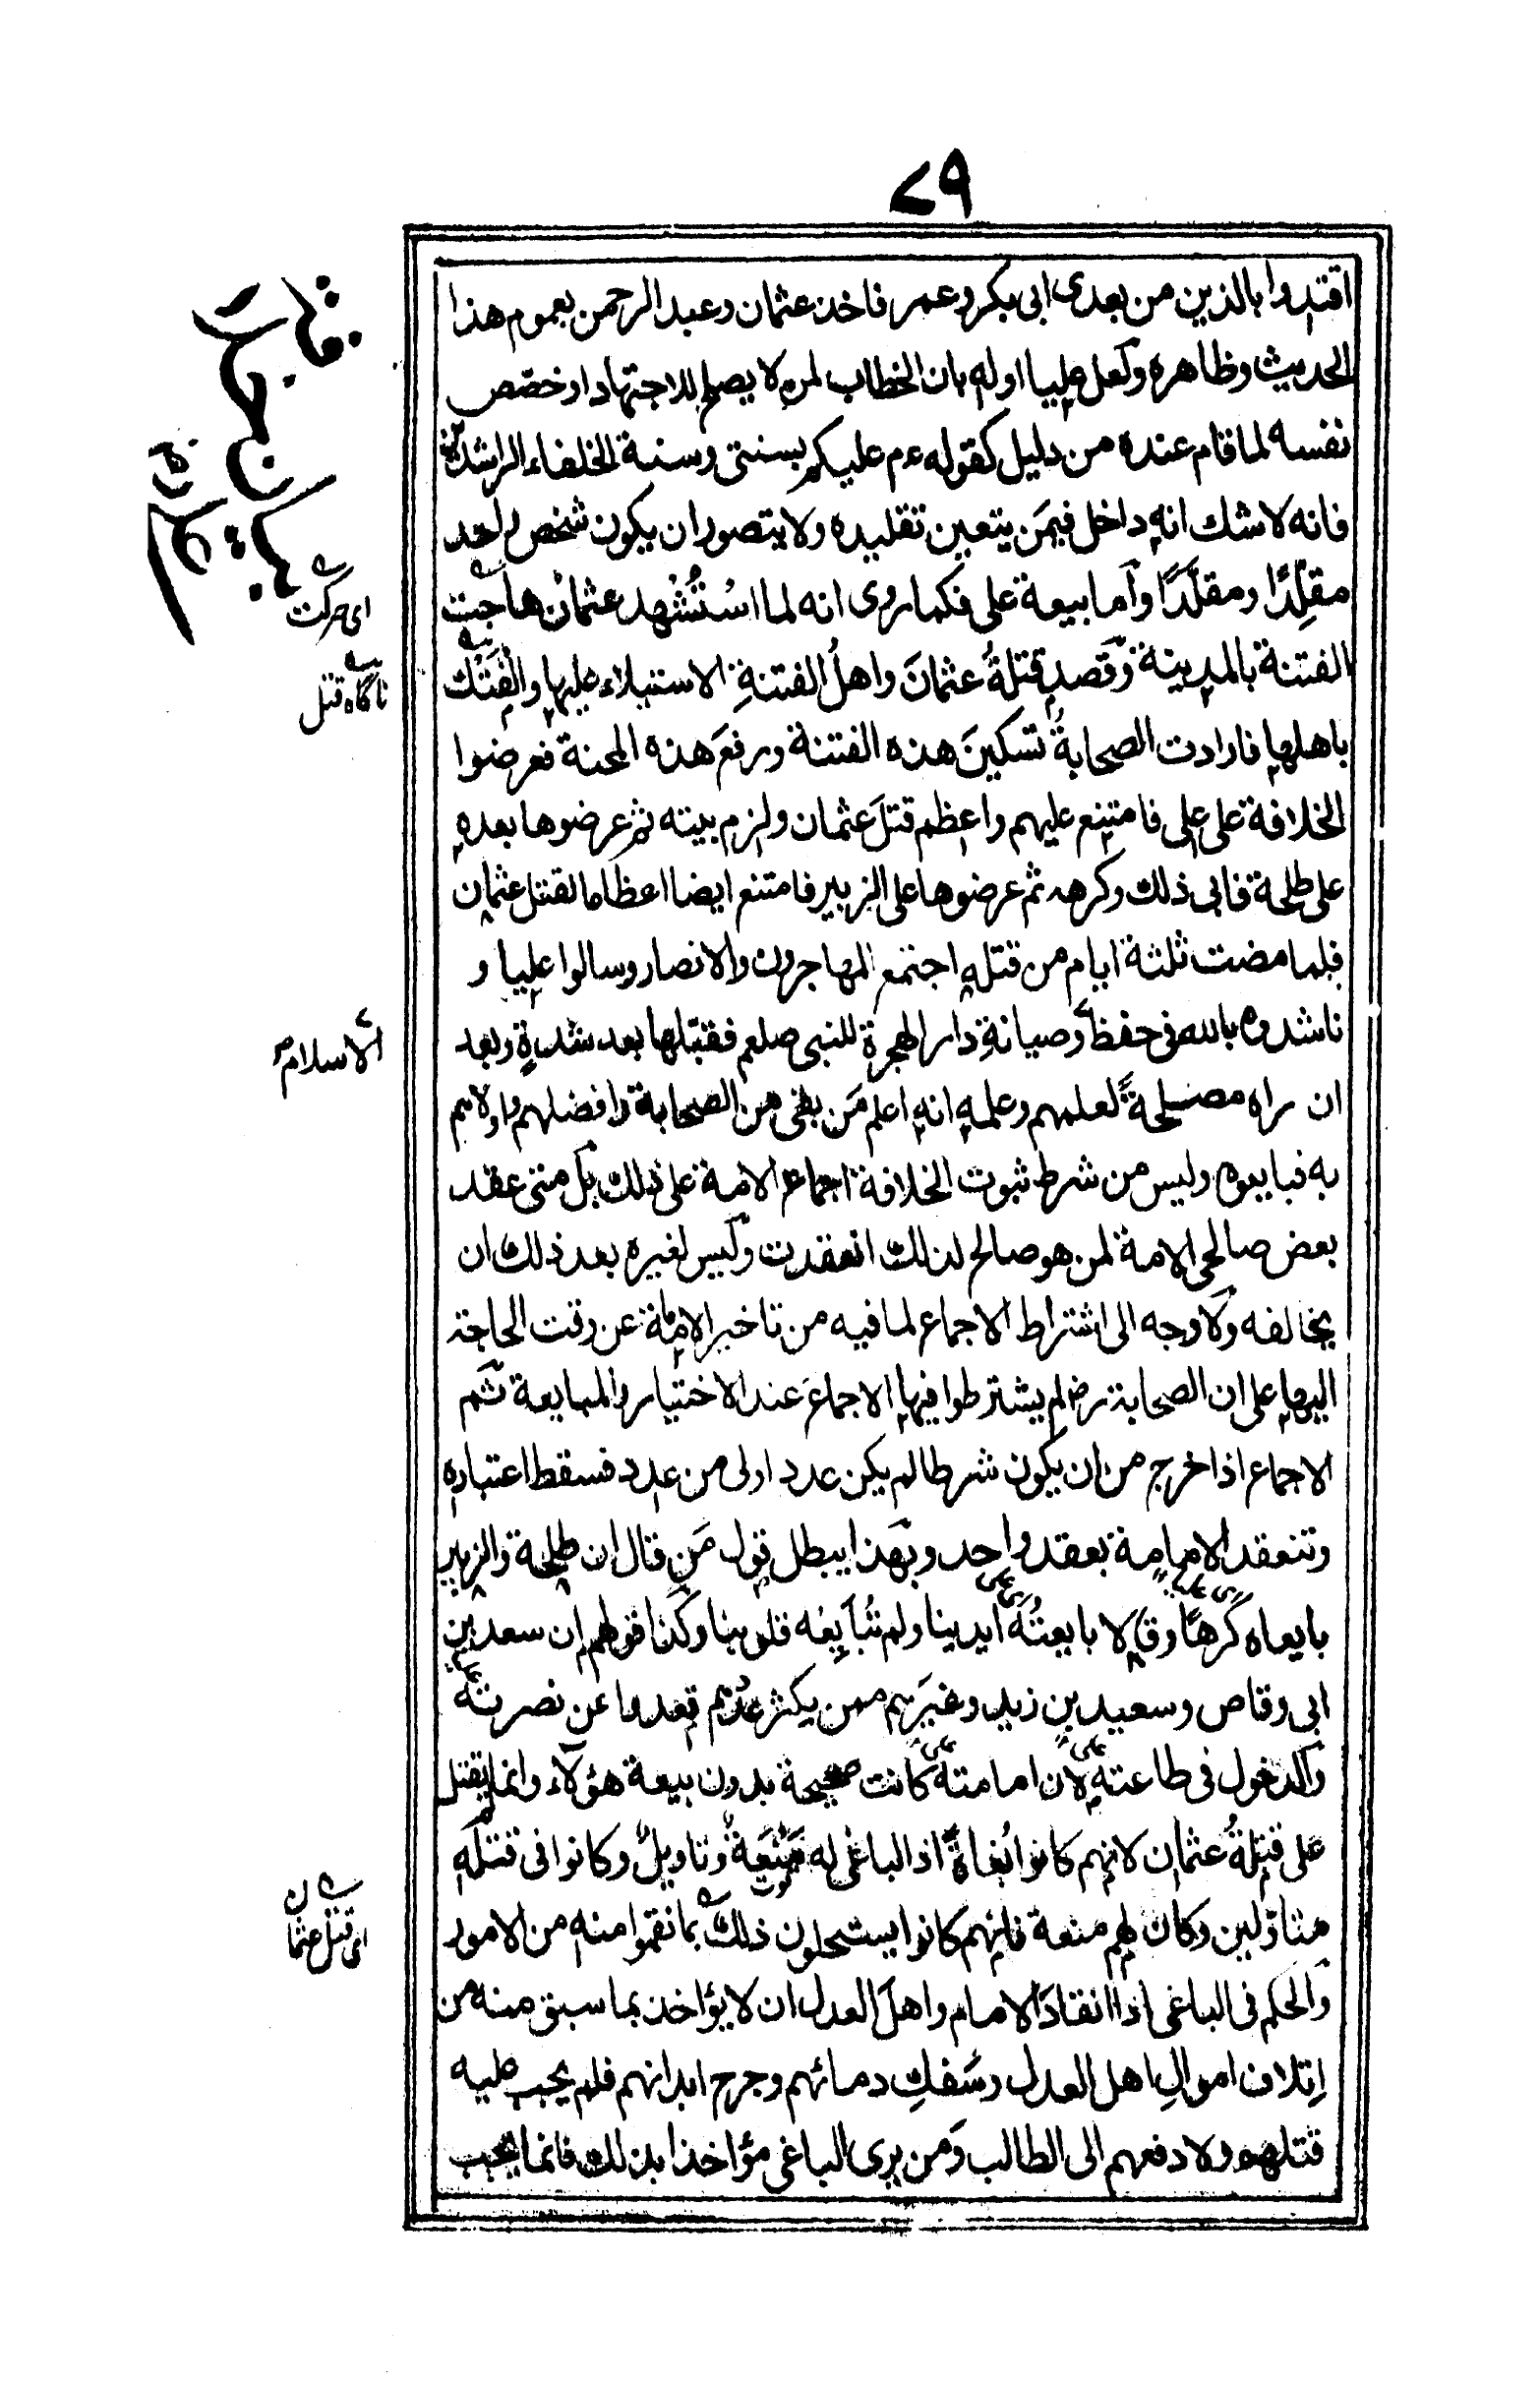 ٧٩
اقتدوا بالذين من بعدى ابى بكر وعمر فاخذ عثمان وعبد الرحمن بعموم هذا
الحديث وظاهره ولعل عليا اوله بان الخطاب لمن لا يصلح للاجتهاد او خصص
نفسه لما قام عنده من دليل كقوله ءم عليكم بسنتى وسنة الخلفاء الراشدين
فانه لا شك انه داخل فيمَن يتعين تقليده ولا يتصور ان يكون شخص واحد
مقلِدًا ومقلَدًا وأما بيعة على فكما روى انه لما اسْتُشْهد عثمان هاجت
الفتنة بالمدينة وقصد قتلةُ عثمانَ واهلُ الفتنةِ الاستيلاء عليها والفَتْك
باهلها فارادت الصحابةُ تسكينَ هذه الفتنة ورفعَ هذه المحنة فعرضوا
الخلافة على على فامتنع عليهم واعظم قتلَ عثمان ولزم بيته ثم عرضوها بعده
على طلحة فابى ذلك وكرهه ثم عرضوها على الزبير فامتنع ايضا اعظاما لقتل عثمان
فلما مضت ثلثة ايام من قتله اجتمع المهاجرون والانصار وسالوا عليا و
ناشدوه بالله فى حفظ وصيانةِ دار الهجرة للنبى صلعم فقبّلها بعد شدةٍ وبعد
ان راه مصلحةً لعلمهم وعلمه انه اعلم مَن بقى من الصحابة وافضلهم واولاهم
به فبايعوه وليس من شرط ثبوت الخلافة اجماع الامة على ذلك بل متى عقد
بعض صالحى الامة لمن هو صالح لذلك انعقدت وليس لغيره بعد ذلك ان
يخالفه ولا وجه الى اشتراط الاجماع لما فيه من تاخير الامامة عن وقت الحاجة
اليها على ان الصحابة رض لم يشترطوا فيها الاجماعَ عند الاختيار والمبايعة ثم
الاجماع اذا خرج من ان يكون شرطا لم يكن عدد اولى من عدد فسقط اعتباره
وتنعقد الامامة بعقد واحد وبهذا يبطل قول مَن قال ان طلحة والزبير
بايعاه كَرهًا وقالا بايعتْهُ ايدينا ولم تُبايِعْه قلوبنا وكذا قولهم ان سعد بن
ابى وقاص وسعيد بن زيد وغيرَهم ممن يكثر عدُّهم قعدوا عن نصرته
والدخول فى طاعته لان امامته كانت صحيحة بدون بيعة هؤلاء وانما لم يقتل
على قتلةُ عثمان لانهم كانوا بُغاةً اذ الباغى له مَنَعَةٌ وتاويلٌ وكانوا فى قتله
متاوّلين وكان لهم منعة فانهم كانوا يستحلون ذلك بما نقموا منه من الامور
والحكم فى الباغى اذا انقادَ لامام واهلَ العدل ان لا يؤاخذ بما سبق منه من
اِتلاف اموالِ اهل العدل وسَفكِ دمائهم وجرح ابدانهم فلم يجب عليه
قتلهم ولا دفعهم الى الطالب ومن يرى الباغى مؤاخذا بذلك فانما يجب
اى حركت
ناگاه قتل
الاسلام
اى قتل عثمان